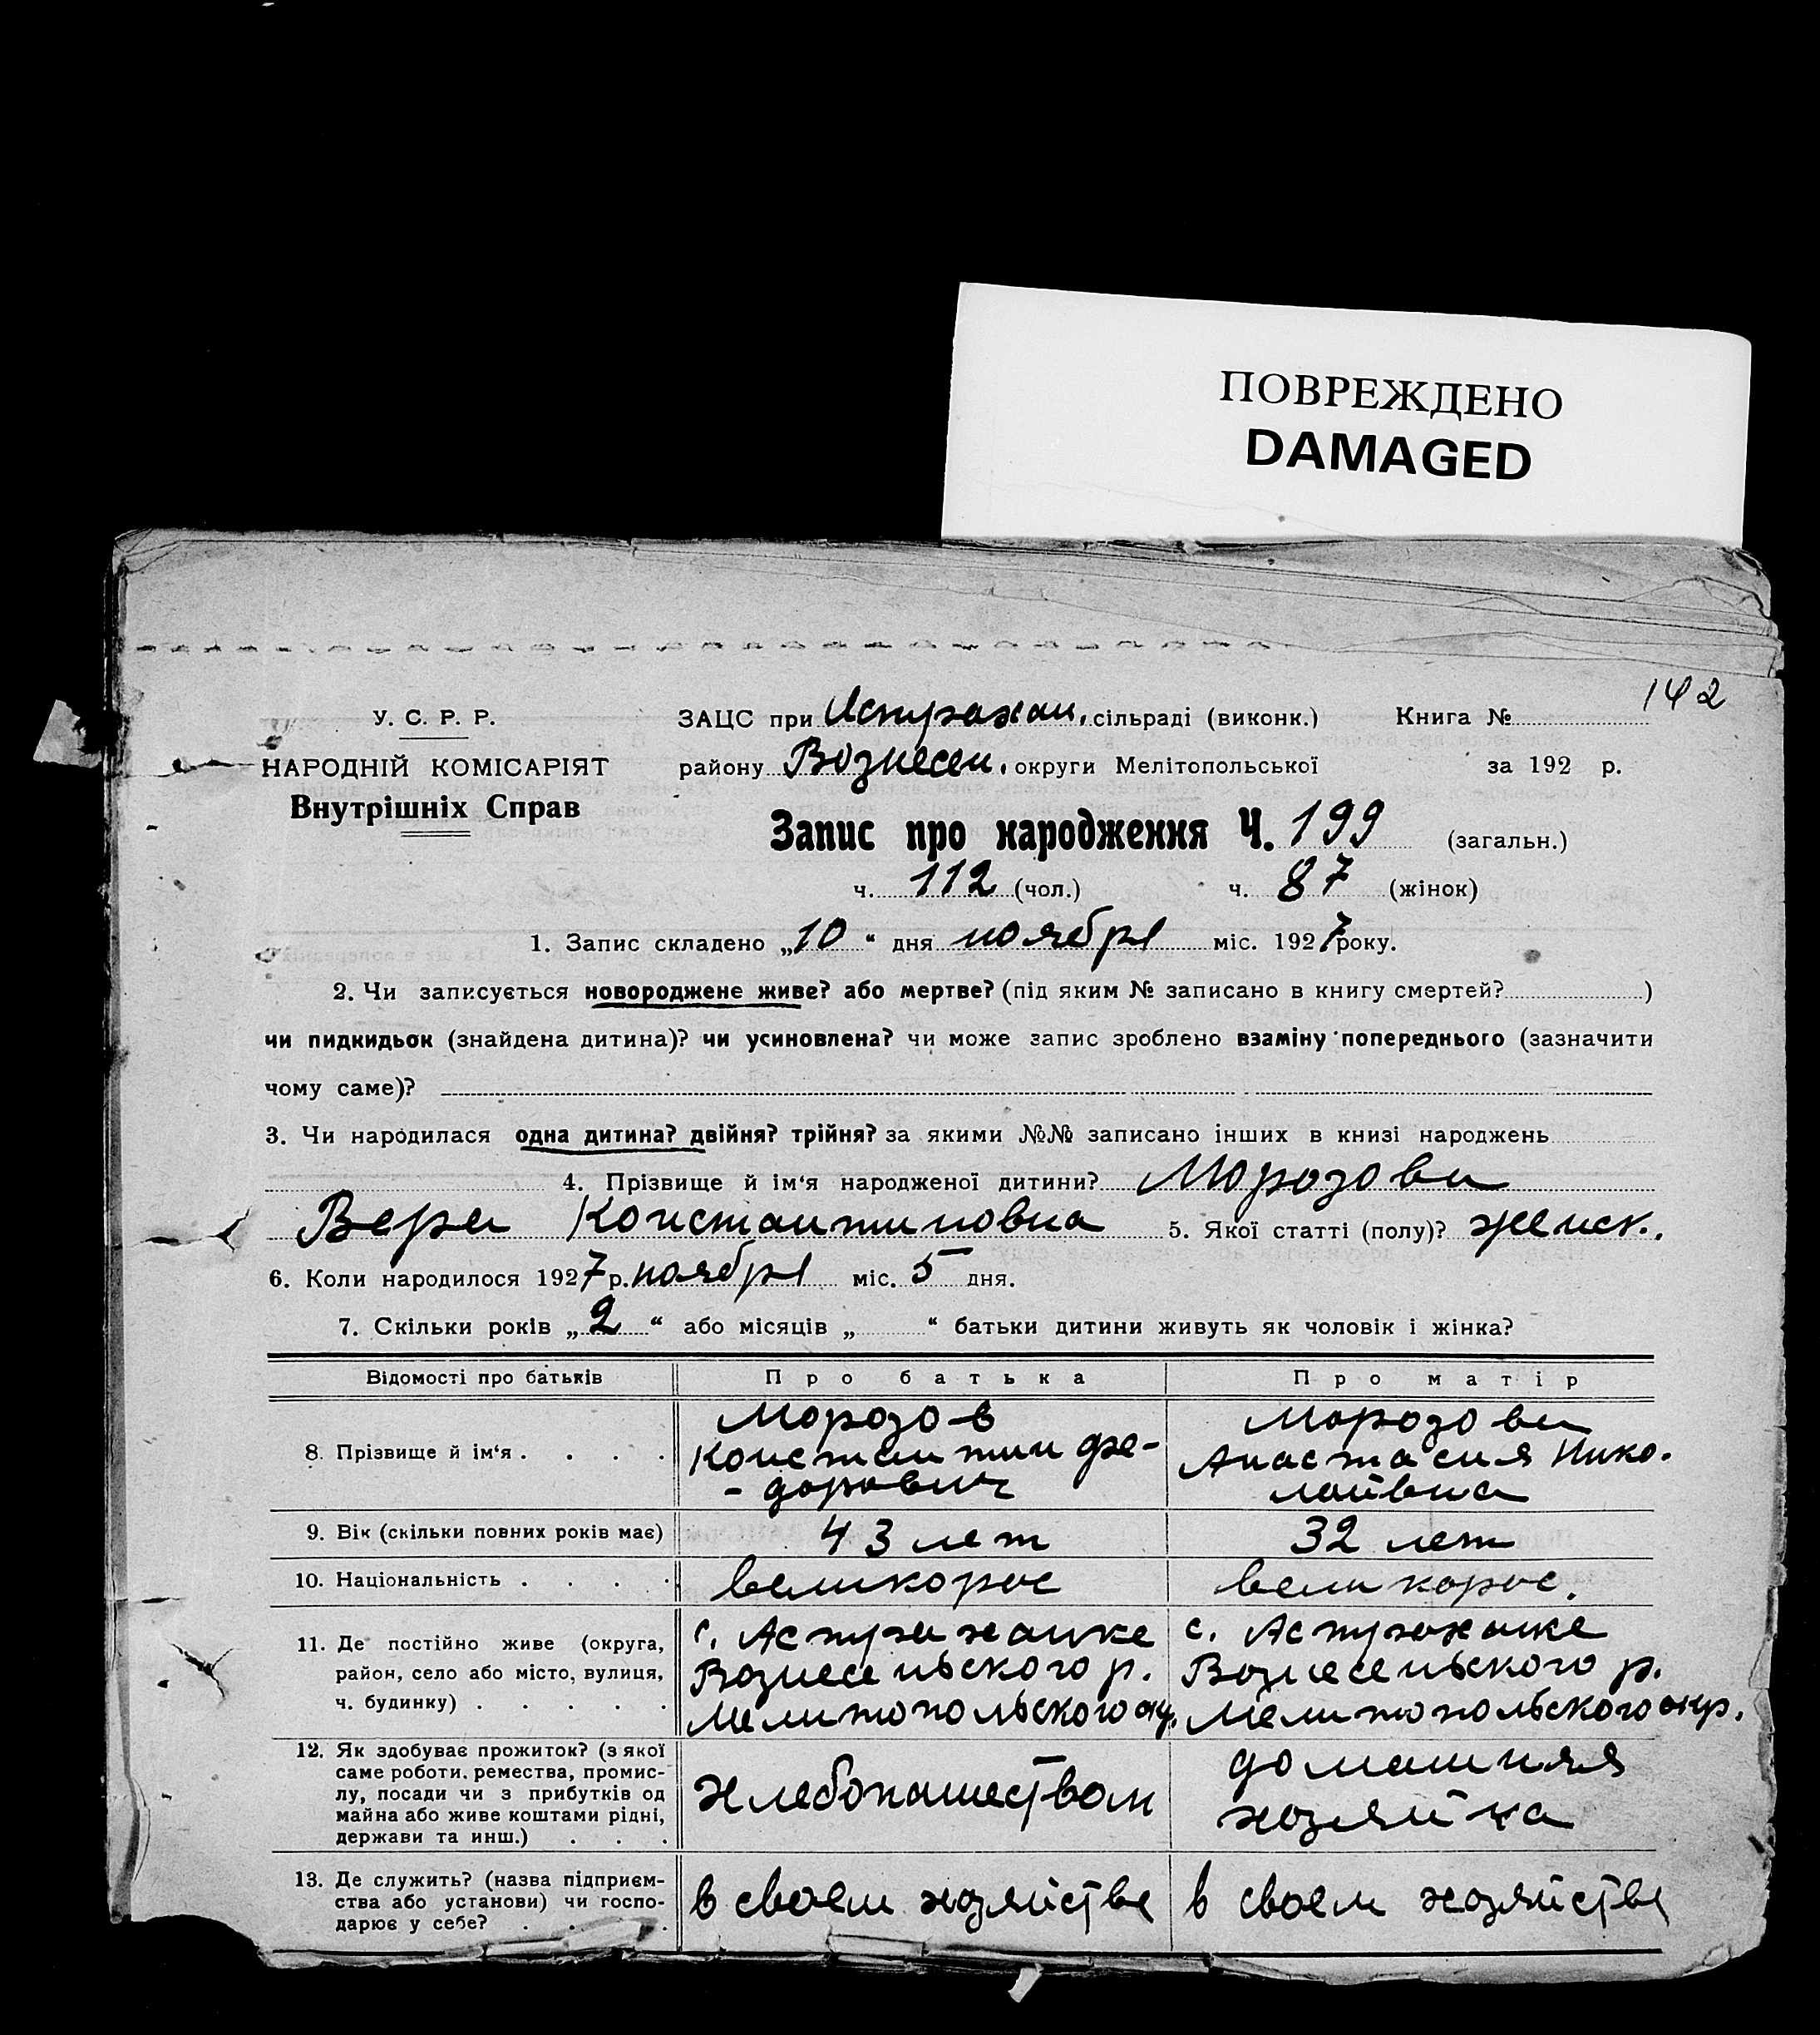 ПОВРЕЖДЕНО
DAMAGED
142
У. С. Р. Р.
НАРОДНІЙ КОМІСАРІЯТ
Внутрішніх Справ
ЗАЦС при Астрахан. сільраді (виконк.) Книга №
району Вознесен. округи Мелітопольської за 192 р.
Запис про народження Ч. 199 (загальн.)
ч. 112 (чол.) ч. 87 (жінок)
1. Запис складено „10“ дня ноября міс. 1927 року.
2. Чи записується новороджене живе? або мертве? (під яким № записано в книгу смертей? )
чи пидкидьок (знайдена дитина)? чи усиновлена? чи може запис зроблено взаміну попереднього (зазначити
чому саме)?
3. Чи народилася одна дитина? двійня? трійня? за якими №№ записано інших в книзі народжень
4. Прізвище й ім‘я народженої дитини? Морозова
Вера Константиновна 5. Якої статті (полу)? женск.
6. Коли народилося 1927 р. ноября міс. 5 дня.
7. Скільки років „2“ або місяців „ “ батьки дитини живуть як чоловік і жінка?
Відомості про батьків Про батька Про матір
8. Прізвище й ім‘я . . . .
Морозов
Константин Фе-
-дорович
Морозова
Анастасия Нико.
лаивна
9. Вік (скільки повних років має) 43 лет 32 лет
10. Національність . . . . великорос великорос.
11. Де постійно живе (округа,
район, село або місто, вулиця,
ч. будинку) . . . . .
с. Астраханке
Вознесеньского р.
Мелитопольского окр.
с. Астраханке
Вознесеньского р.
Мелитопольского окр.
12. Як здобуває прожиток? (з якої
саме роботи, ремества, промис-
лу, посади чи з прибутків од
майна або живе коштами рідні,
держави та инш.) . . .
хлебопашеством
домашняя
хозяйка
13. Де служить? (назва підприєм-
ства або установи) чи госпо-
дарює у себе? . . . .
в своем хозяйстве
в своем хозяйстве